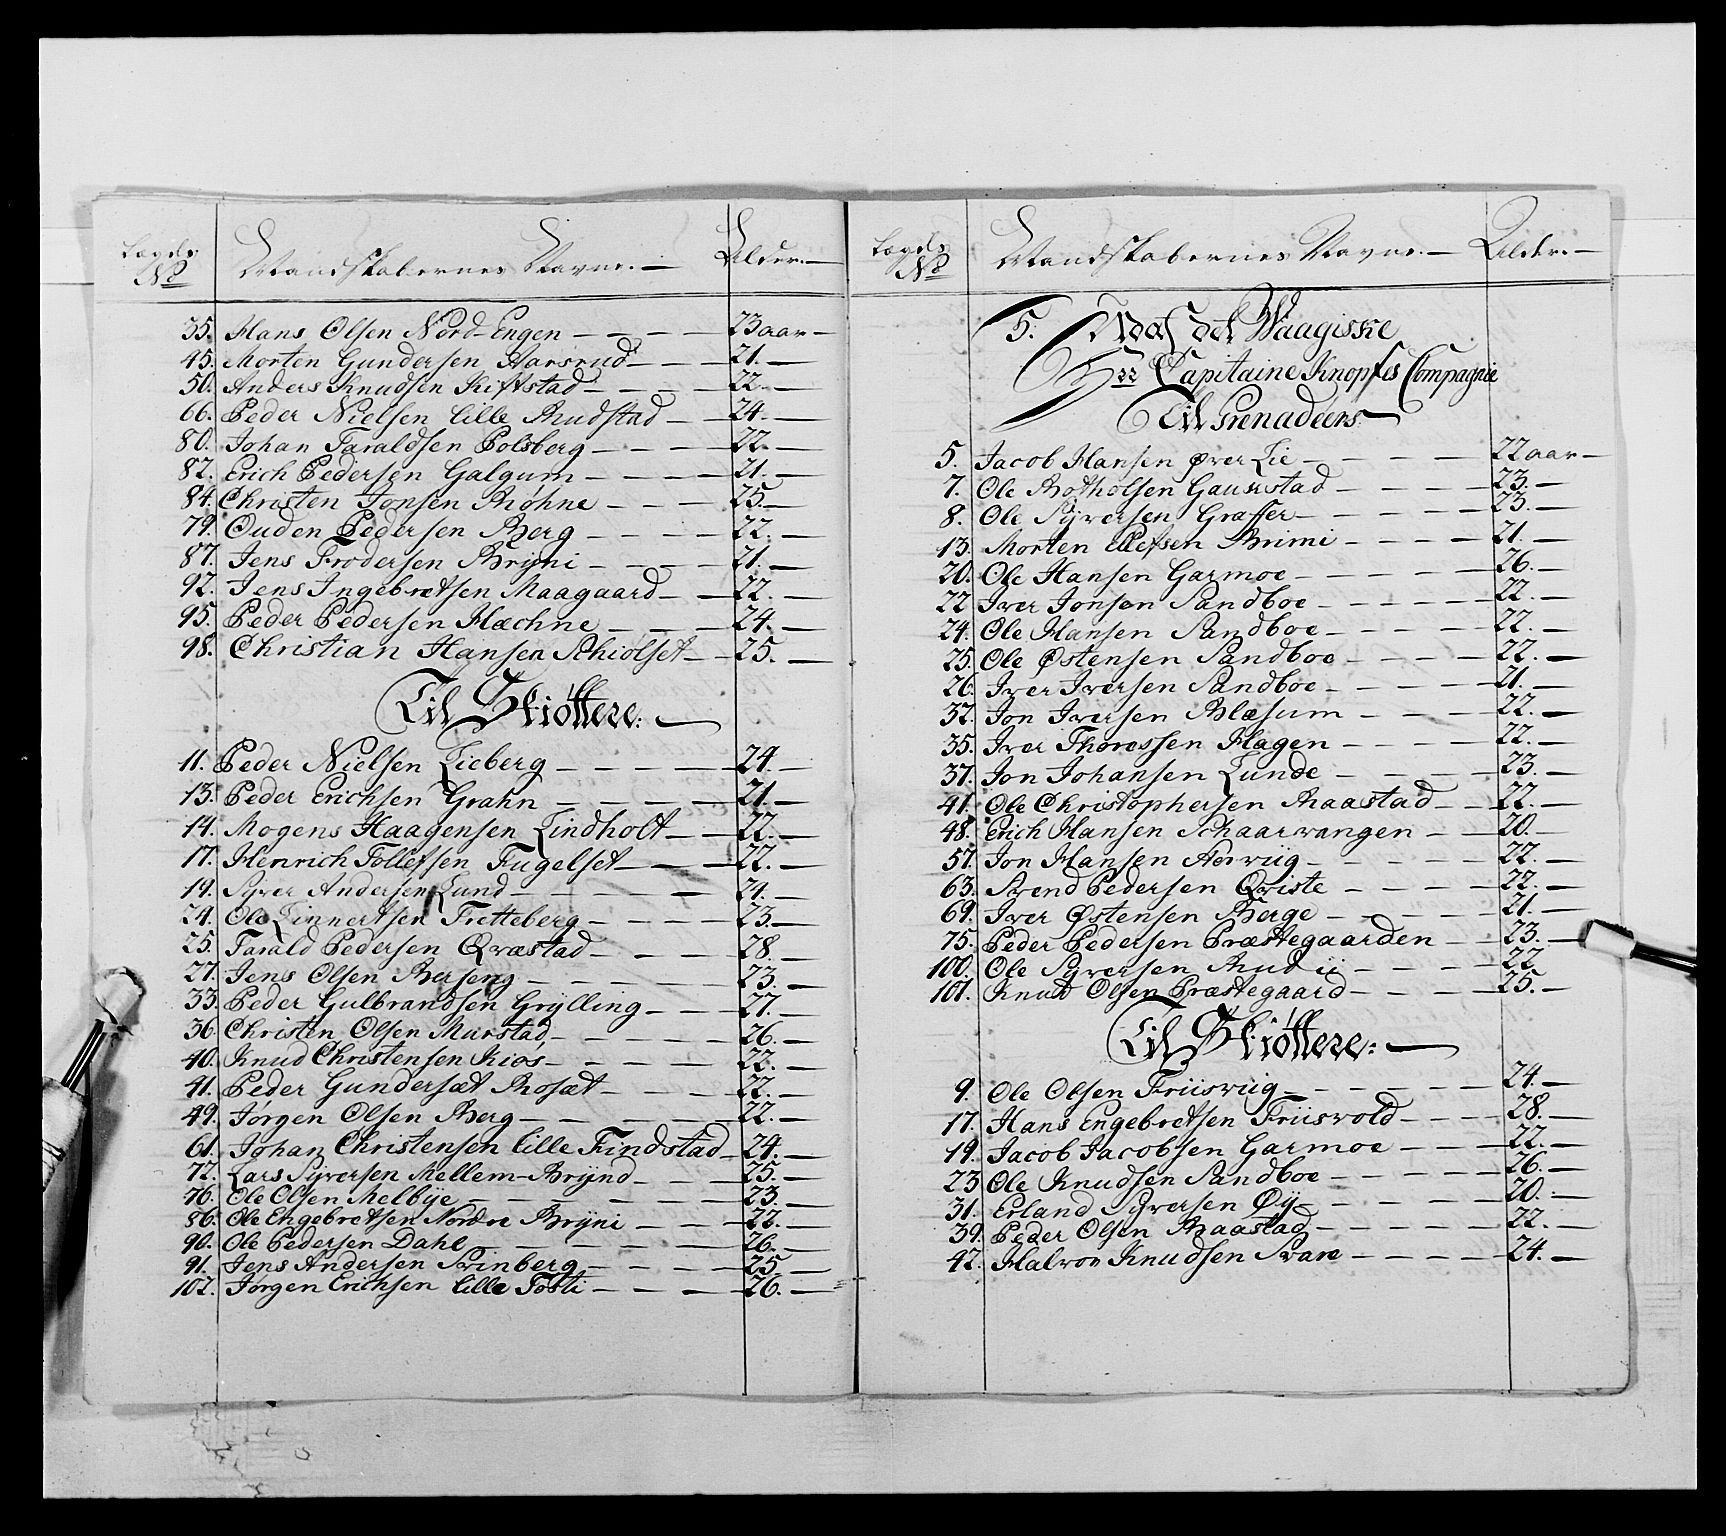 Lægds No
Mandskabernes Navne.
Alder.
35. Hans Olsen Nord-Engen 23 aar
45. Morten Gundersen Aarsrud 21.
50. Anders Knudsen Kiftstad 22.
66. Peder Nielsen lille Rudstad 24.
80. Johan Taraldsen Polsberg 22.
82. Erich Pedersen Galgum 21.
84. Christen Jonsen Røhne 25.
79. Ouden Pedersen Berg 22.
87. Jens Frodersen Bryni 21.
92. Jens Ingebretsen Maagaard 22.
95. Peder Pedersen Hæchne 24.
98. Christian Hansen Schiolset 25.
Til Skiøttere.
11. Peder Nielsen Lieberg 24.
13. Peder Erichsen Grahn 21.
14. Mogens Haagensen Lindholt 22.
17. Henrich Tollefsen Fugelset 22.
19. Syver Andersen Lund 24.
24. Ole Linnertsen Fretteberg 23.
25. Tarald Pedersen Qvæstad 28.
27. Jens Olsen Berseng 23.
33. Peder Gulbrandsen Grylling 27.
36. Christen Olsen Murstad 26.
40. Knud Christensen Kios 22.
41. Peder Gundersæt Rosæt 22.
49. Jørgen Olsen Berg 22.
61. Johan Christensen lille Findstad 24.
72. Lars Syversen Mellem-Brynd 25.
76. Ole Olsen Melbye 23.
86. Ole Engebretsen Nordre Bryni 22.
90. Ole Pedersen Dahl 26.
91. Jens Andersen Svinberg 25
102. Jørgen Erichsen lille Tosti 26.
Lægds No
Mandskabernes Navne.
Alder.
5. Udaf det Waagiske
Hrr Capitaine Knopfis Compagnie
Til Grenadeers
5. Jacob Hansen øver Lie 22 aar
7. Ole Botholsen Gaustad 23.
8. Ole Syversen Graffer 23.
13. Morten Ellefsen Brimi 21.
20. Ole Hansen Garmoe 26.
22 Iver Jonsen Sandboe 22.
24. Ole Hansen Sandboe 22.
25. Ole Østensen Sandboe 22.
26. Iver Iversen Sandboe 21.
32. Jon Iversen Blæsum 22.
35. Iver Thoressen Hagen 22.
37. Jon Johansen Lunde 23.
41. Ole Christophersen Raastad 22.
48. Erich Hansen Schaarvangen 20.
57. Jon Hansen Nerviig 22.
63. Svend Pedersen Qviste 22.
69. Iver Østensen Berge 21.
75. Peder Pedersen Præstegaarden 23.
100. Ole Syversen Rudii 22
101. Knud Olsen Præstegaard 25.
Til Skiøttere:
9. Ole Olsen Friisviig 24.
17. Hans Engebretsen Friisvold 28.
19. Jacob Jacobsen Garmoe 22.
23 Ole Knudsen Sandboe 26.
31. Erland Syversen Øy 20.
39. Peder Olsen Baastad 22.
42. Halvor Knudsen Svare 24.